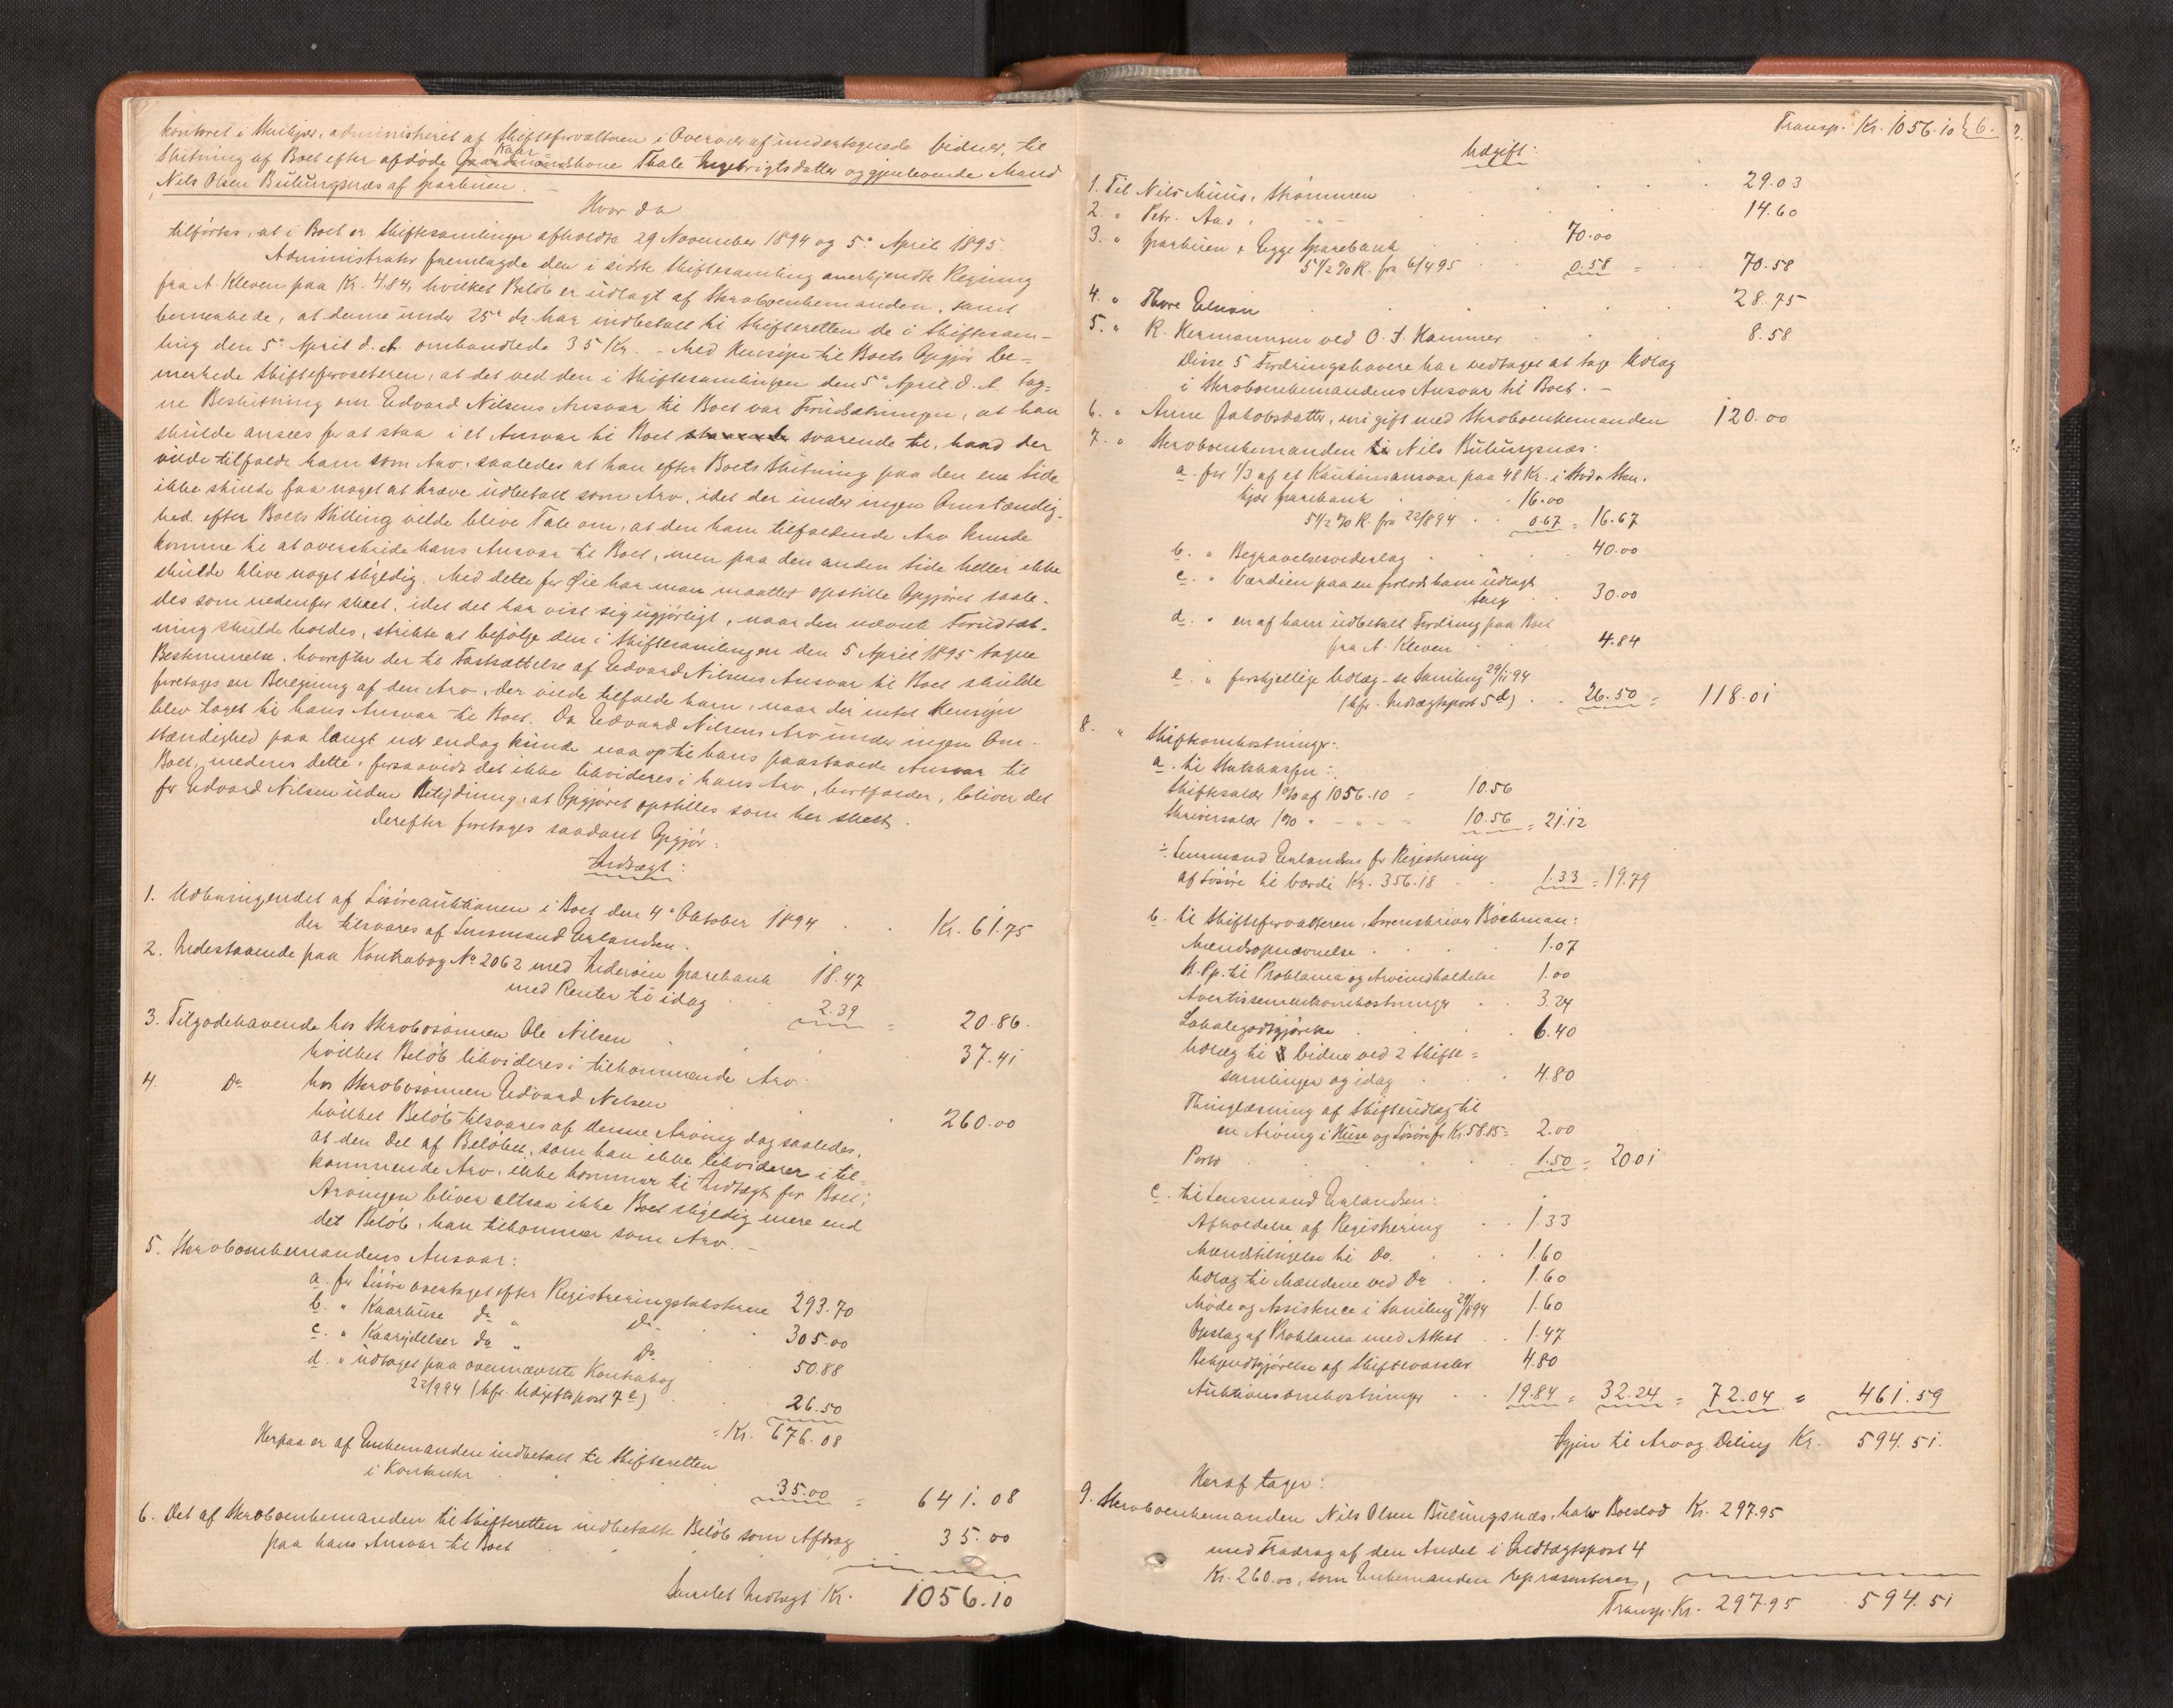 kontoret i Stenkjær, administreret af Skifteforvalteren i Overvær af undertegnede Vidner, til
Slutning af Boet efter afdøde Kaar=
Gaardmandskone Thale Ingebrigtsdatter og gjenlevende Mand
Nils Olsen Bulungsnæs af Sparbuen. —
Hvor da
tilførtes, at i Boet er Skiftesamlinger afholdte 29 November 1894 og 5te April 1895
Administrator fremlagde den i sidste Skiftesamling anerkjendte Regning
fra A. Kleven paa Kr. 4.84, hvilket Beløb er udlagt af Stervboenkemanden, samt
bemerkede, at denne under 25de ds. har indbetalt til Skifteretten de i Skiftesam-
ling den 5te April d. A. omhandlede 35 Kr. – Med Hensyn til Boets Opgjør be=
merkede Skifteforvalteren, at det ved den i Skiftesamlingen den 5te April d. A. tag=
ne Beslutning om Edvard Nilsens Ansvar til Boet var Forudsætningen, at han
skulde ansees for at staa i et Ansvar til Boet svarende til, hvad der
vilde tilfalde ham som Arv, saaledes at han efter Boets Slutning paa den ene Side
ikke skulde faa noget at kræve udbetalt som Arv, idet der under ingen Omstændig-
hed efter Boets Stilling vilde blive Tale om, at den ham tilfaldende Arv kunde
komme til at overskride hans Ansvar til Boet, men paa den anden Side heller ikke
skulde blive noget skyldig. Med dette for Øie har man maattet opstille Opgjøret saale-
des som nedenfor skeet, idet det har vist sig ugjørligt, naar den nævnte Forudsæt-
ning skulde holdes, strikte at befølge den i Skiftesamlingen den 5 April 1895 tagne
Bestemmelse, hvorefter der til Fastsættelse af Edvard Nilsens Ansvar til Boet skulde
foretages en Beregning af den Arv, der vilde tilfalde ham, naar der intet Hensyn
blev taget til hans Ansvar til Boet. Da Edvard Nilsens Arv under ingen Om-
stændighed paa langt nær endog kunde naa op til hans paastaaede Ansvar til
Boet, medens dette, forsaavidt det ikke likvideres i hans Arv, bortfalder, bliver det
for Edvard Nilsen uden Betydning, at Opgjøret opstilles som her skeet.
Derefter foretages saadant Opgjør:
Indtægt:
1. Udbringendet af Løsøreauktionen i Boet den 4de Oktober 1894 . . Kr. 61.75
der tilsvares af Lensmand Erlandsen.
2. Indestaaende paa Kontrabog No 2062 med Inderøen Sparebank 18.47
med Renter til idag . . 2.39 = 20.86.
3. Tilgodehavende hos Stervbosønnen Ole Nilsen . . . 37.41
hvilket Beløb likvideres i tilkommende Arv.
4. Do hos Stervbosønnen Edvard Nilsen . . . 260.00
hvilket Beløb tilsvares af denne Arving dog saaledes,
at den Del af Beløbet, som han ikke likviderer i til=
kommende Arv, ikke kommer til Indtægt for Boet;
Arvingen bliver altsaa ikke Boet skyldig mere end
det Beløb, han tilkommer som Arv. –
5. Stervboenkemandens Ansvar:
a. for Løsøre overtaget efter Registreringstaksterne 293.70
b. " Kaarhuse do " do . 305.00
c. " Kaarydelser do " do . 50.88
d. " udtaget paa ovennævnte Kontrabog
22/9 94 (kfr. Udgiftspost 7 e) . . 26.50
= Kr. 676.08
Herpaa er af Enkemanden indbetalt til Skifteretten
i Kontanter . . . 35.00 = 641.08
6. Det af Stervboenkemanden til Skifteretten indbetalte Beløb som Afdrag
paa hans Ansvar til Boet . . . 35.00
Samlet Indtægt Kr. 1056.10
Transp. Kr. 1056.10 6.
Udgift:
1. Til Nils Muus, Strømmen . . . 29.03
2. " Petr. Aas, – " – . . . 14.60
3. " Sparbuen & Egge Sparebank . . 70.00
5 1/2 % R. fra 6/4 95 . . 0.58 = . . 70.58
4. " Thore Elnan . . . 28.75
5. " R. Hermannsen ved O. J. Hammer . . . 8.58
Disse 5 Fordringshavere har vedtaget at tage Udlæg
i Stervboenkemandens Ansvar til Boet. –
6. " Anne Jakobsdatter, nu gift med Stervboenkemanden 120.00
7. " Stervboenkemanden Nils Bulungsnæs:
a. for 1/3 af et Kautionsansvar paa 48 Kr. i Stod & Sten-
kjær Sparebank . . 16.00
5 1/2 % R. fra 22/8 94 . . 0.67 = 16.67
b. " Begravelsesvederlag . . . 40.00
c. " Værdien paa en forlods ham udlagt
Seng . . 30.00
d. " en af ham udbetalt Fordring paa Boet
fra A. Kleven . . 4.84
e. " forskjellige Udlæg – se Samling 29/11 94
(kfr. Indtægtspost 5 d) . . 26.50 = 118.01
8. " Skifteomkostninger:
a. til Statskassen:
Skiftesalær 1 % af 1056.10 = 10.56
Skriversalær 1 % " – " – 10.56 = 21.12
÷ Lensmand Erlandsen for Registrering
af Løsøre til Værdi Kr. 356.18 . . 1.33 = 19.79
b. til Skifteforvalteren, Sorenskriver Bøckman:
Mændsopnævnelse . . . 1.07
St. Pp. til Proklama og Arveindkaldelse 1.00
Avertissementsomkostninger . . 3.24
Lokalegodtgjørelse . . . 6.40
Udlæg til Vidner ved 2 Skifte=
samlinger og idag . . . 4.80
Thinglæsning af Skifteudlæg til
en Arving i Huse og Løsøre for Kr. 58.85 = 2.00
Porto . . . 1.50 = 20.01
c. til Lensmand Erlandsen:
Afholdelse af Registrering . . 1.33
Mændstilsigelse til Do . . 1.60
Udlæg til Mændene ved Do . . 1.60
Møde og Assistence i Samling 29/11 94 1.60
Opslag af Proklama med Attest . . 1.47
Bekjendtgjørelse af Skiftevarsler 4.80
Auktionsomkostninger . . 19.84 = 32.24 = 72.04 = 461.59
Igjen til Arv og Deling Kr. 594.51.
Heraf tager:
9. Stervboenkemanden Nils Olsen Bulungsnæs, halv Boeslod Kr. 297.95
med Fradrag af den Andel i Indtægtspost 4
Kr. 260.00, som Enkemanden repræsenterer,
Transp. Kr. 297.95 594.51